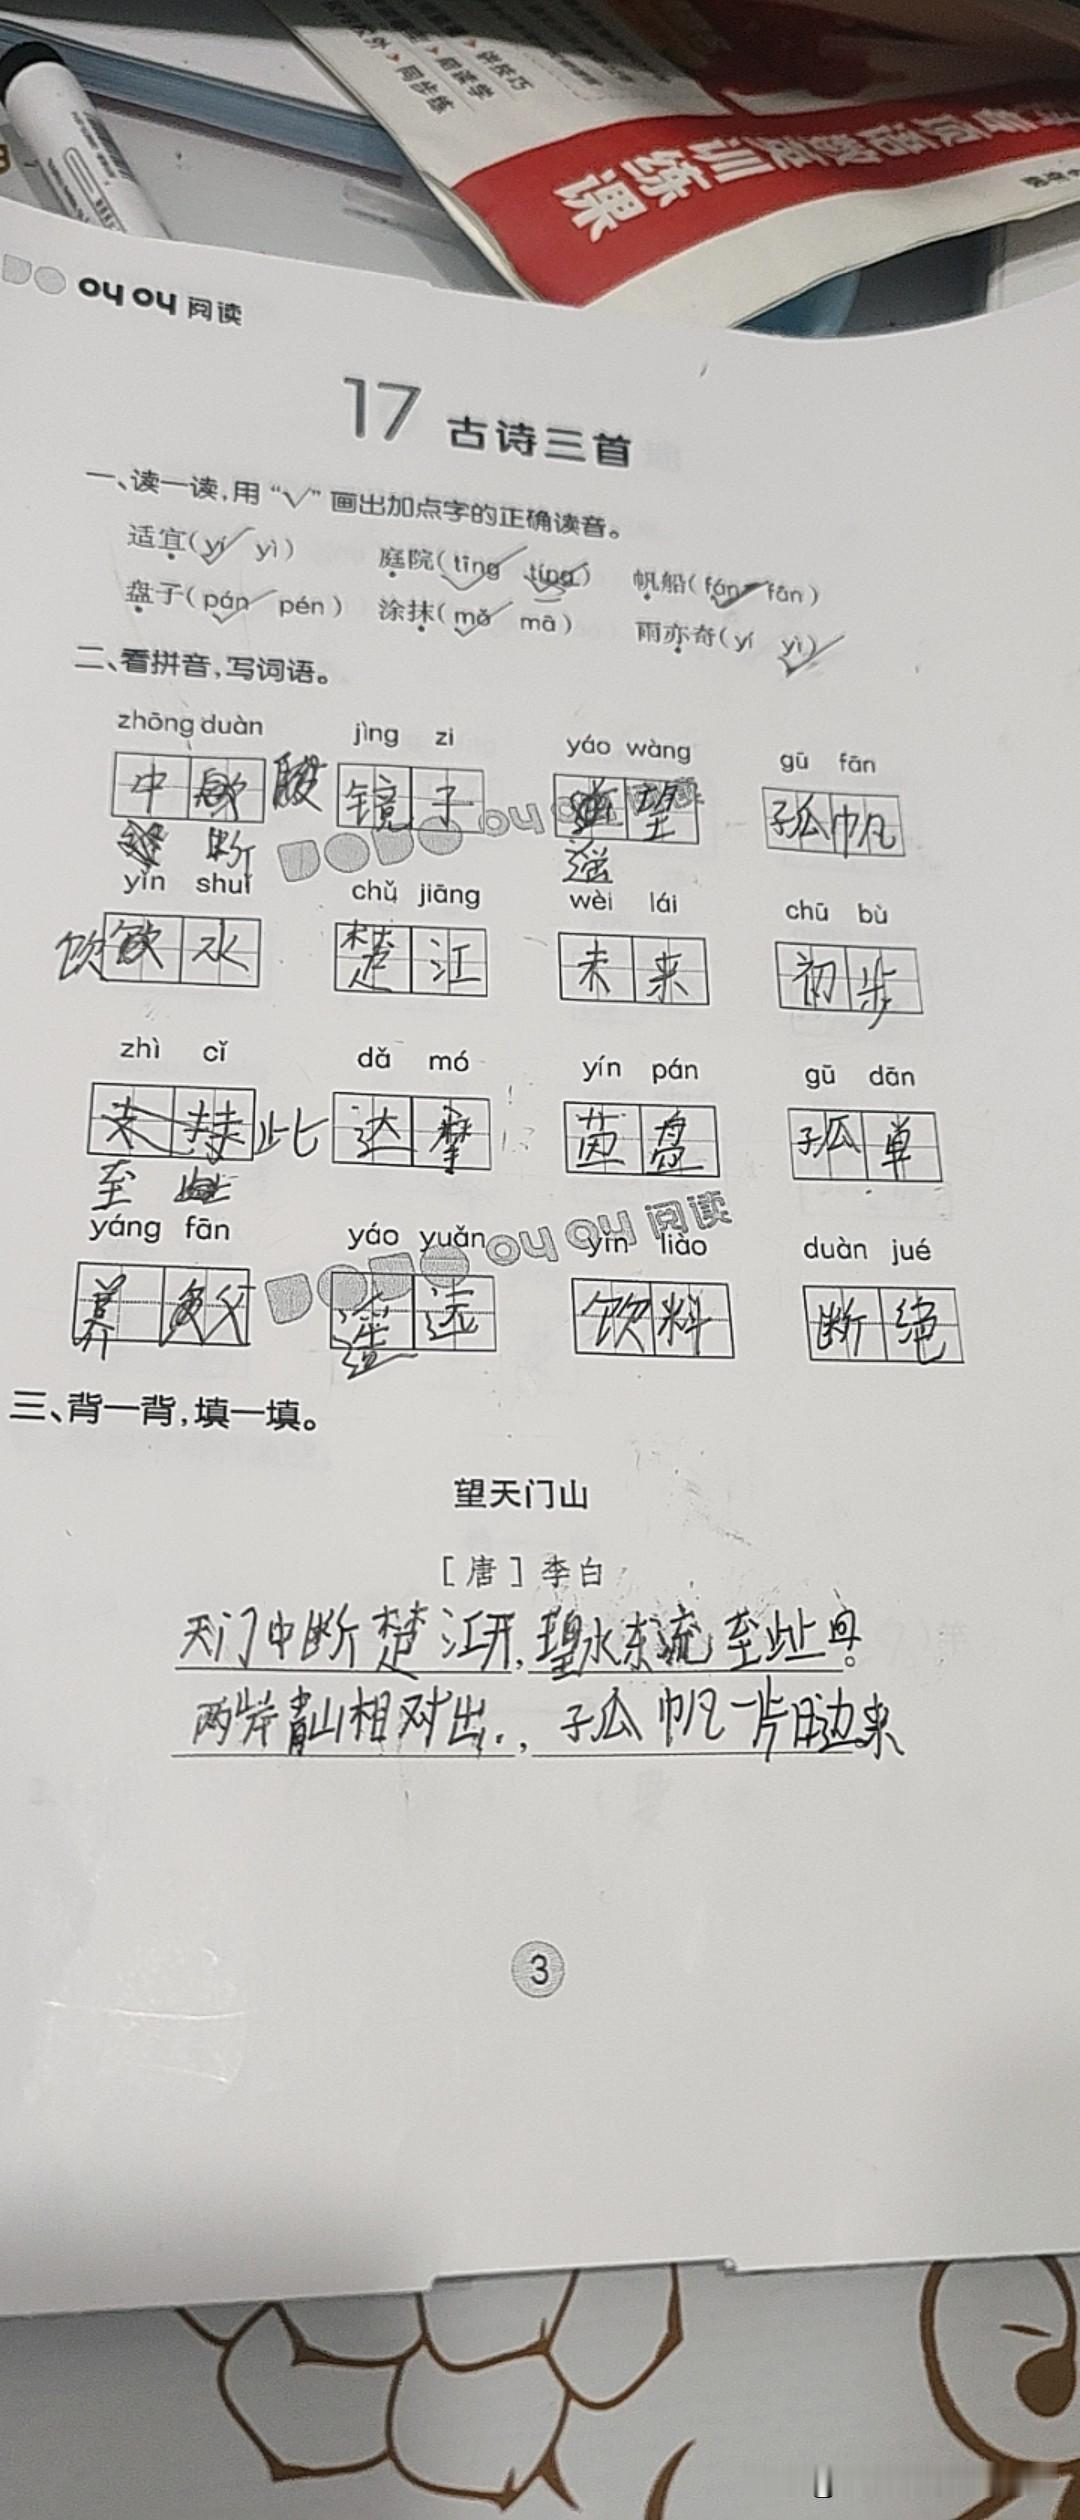 同步练
训练课
OYOY 阅读
17 古诗三首
一、读一读,用“√”画出加点字的正确读音。
适宜(yí√ yì) 庭院(tīng√ tíng) 帆船(fán√ fān)
盘子(pán√ pén) 涂抹(mǒ√ mā) 雨亦奇(yí yì√)
二、看拼音,写词语。
zhōng duàn jìng zi yáo wàng gū fān
中 镜子 望 孤帆
断
yǐn shuǐ chǔ jiāng wèi lái chū bù
饮 饮水 楚江 未来 初步
zhì cǐ dǎ mó yín pán gū dān
支持 此 达摩 茵盘 孤单
至
yáng fān yáo yuǎn yǐn liào duàn jué
养 远 饮料 断绝
OYOY 阅读
三、背一背,填一填。
望天门山
[唐]李白
天门中断楚江开,碧水东流至此回。
两岸青山相对出,孤帆一片日边来
3